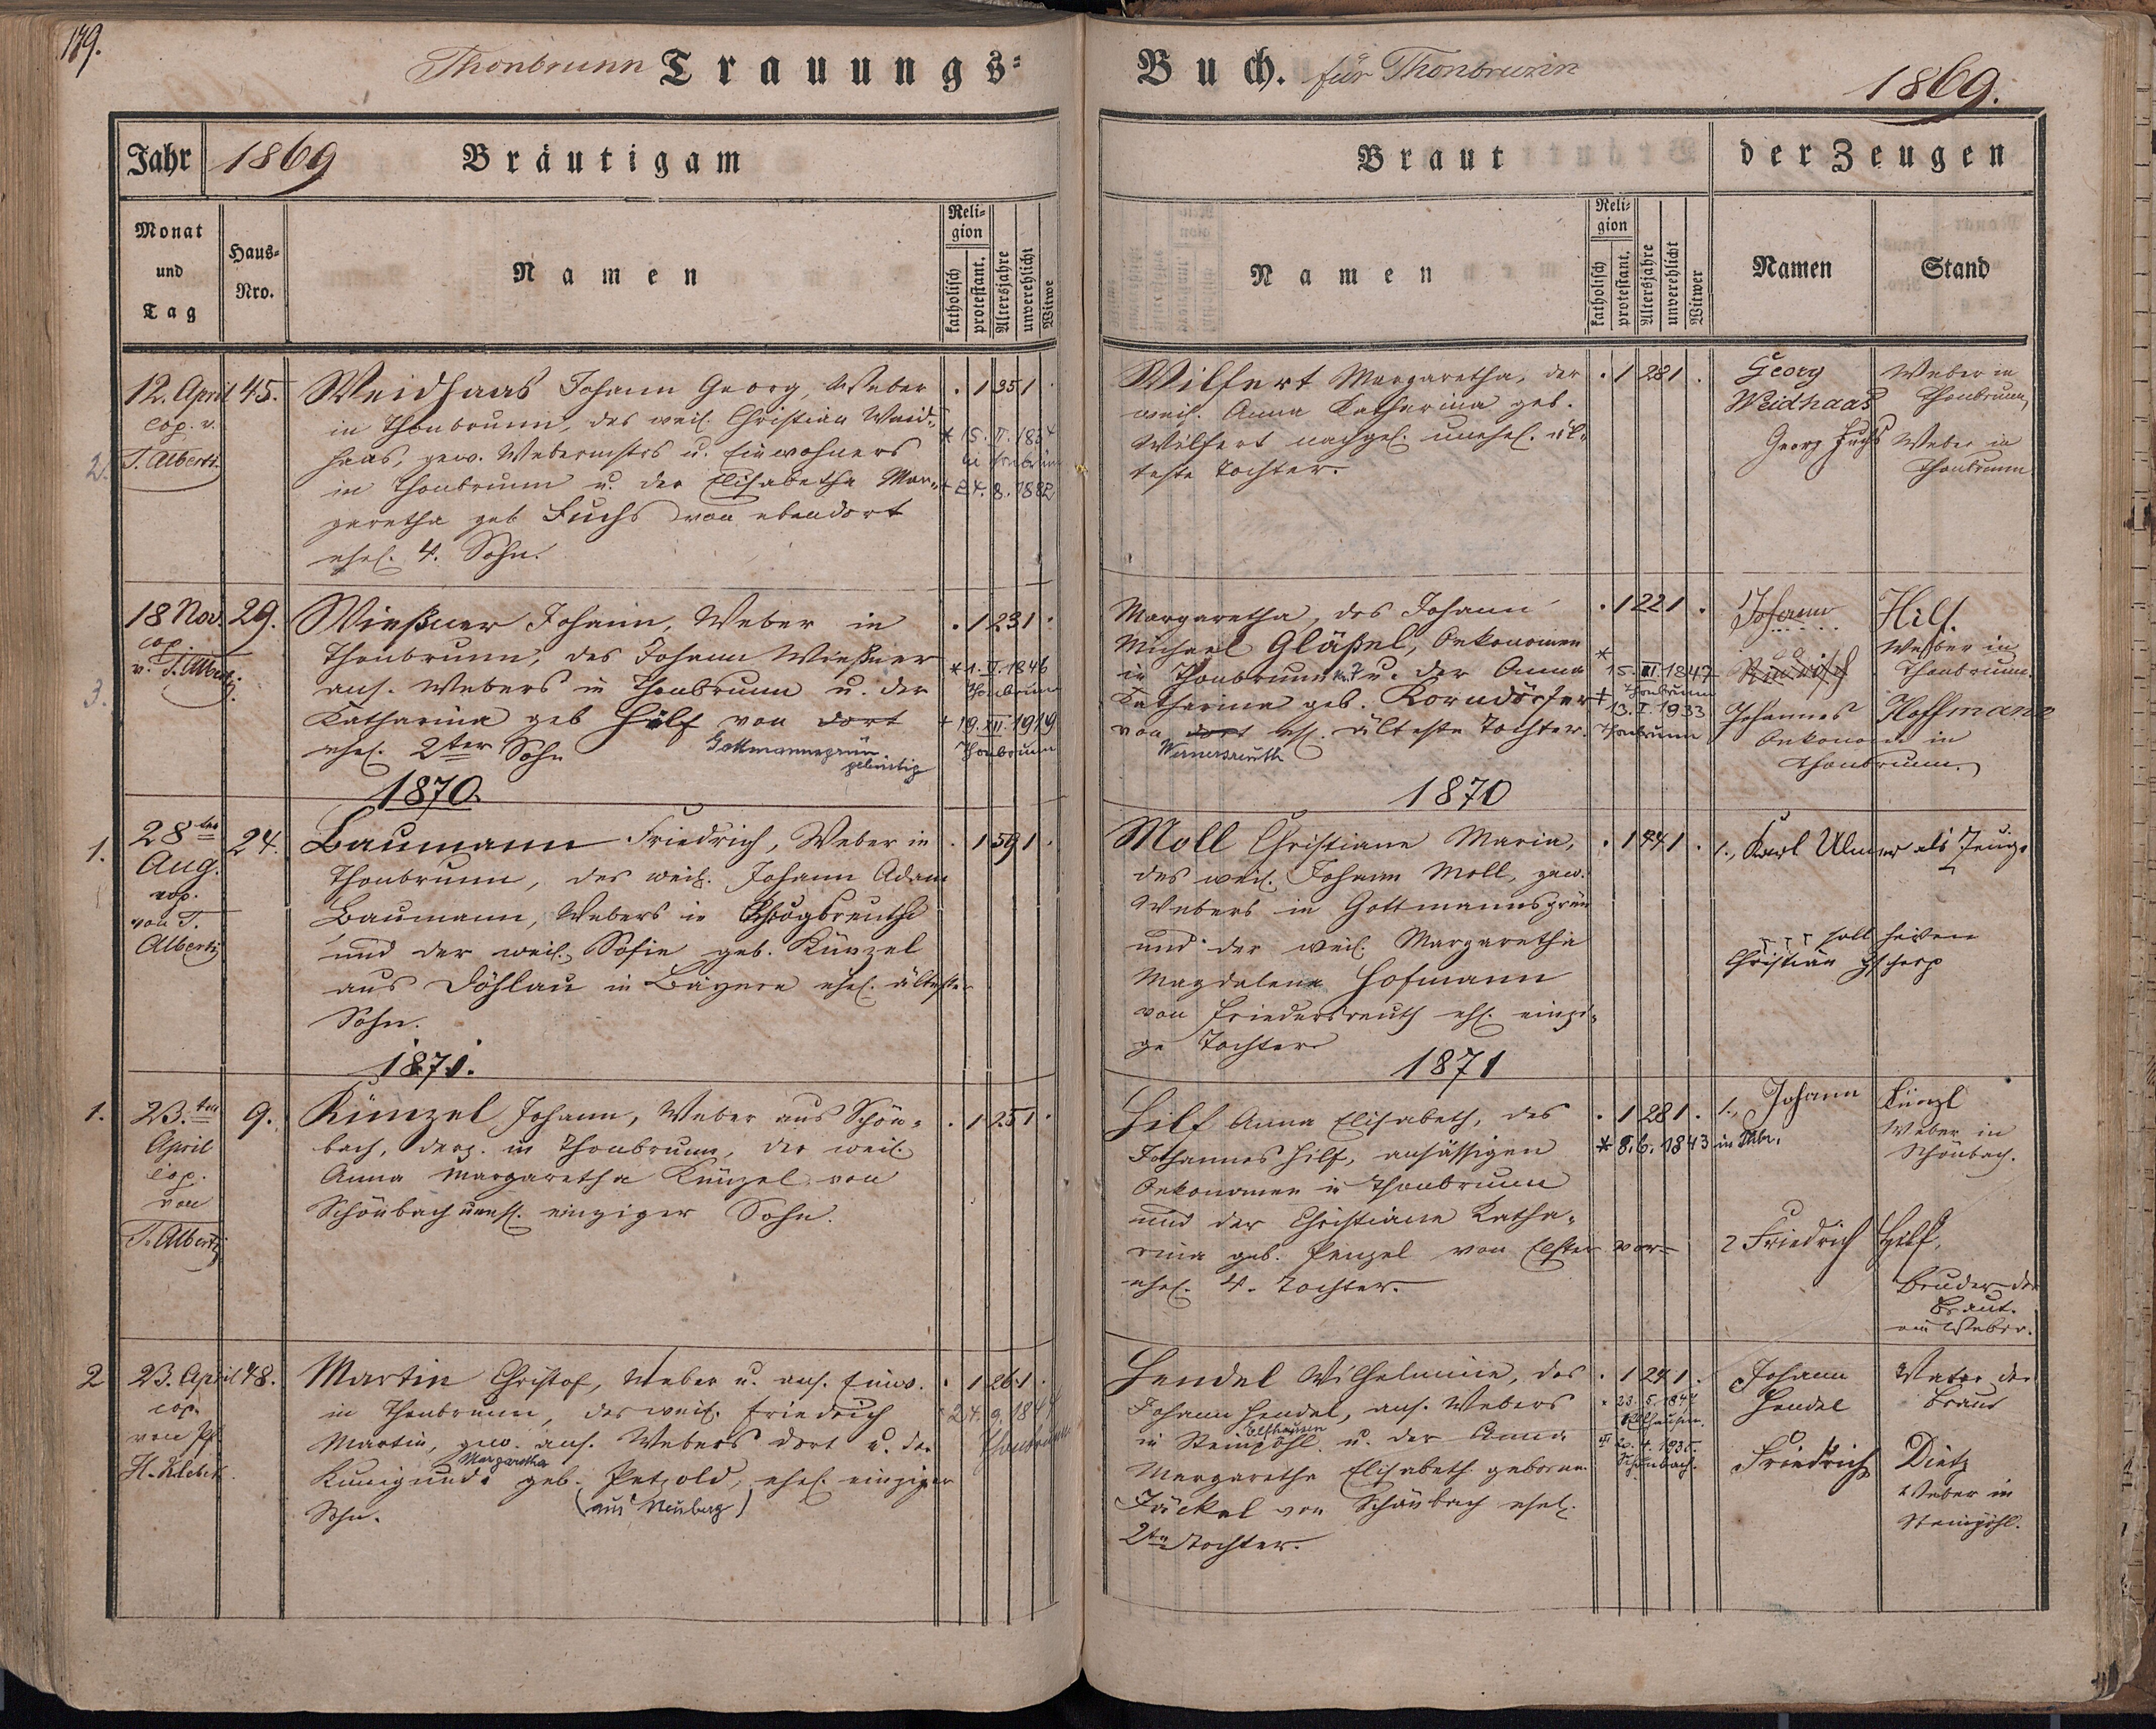 179.
Thonbrunn Trauungs=
Buch. für Thonbrunn
1869.
Jahr 1869 Bräutigam
Braut
der Zeugen
Monat und Tag
Haus-Nro.
Namen
Religion
katholisch
protestant.
Altersjahre
unverehlicht
Witwe
Namen
Religion
katholisch
protestant.
Altersjahre
unverehlicht
Witwer
Namen
Stand
2.
12. April 45.
cop. v.
T. Alberti
Weidhaas Johann Georg, Weber
in Thonbrunn, des weil. Christian Weid-
haas, gew. Webermstrs u. Einwohners
in Thonbrunn u. der Elisabetha Mar-
garetha geb Fuchs von ebendort
ehel. 4. Sohn.
. 1 35 1 .
* 15. II. 1834
in Thonbrunn
+ 24. 8. 1882
Wilfert Margaretha, der
weil. Anna Katharina geb.
Wilfert nachgel. unehel. äl-
teste Tochter.
. 1 28 1 .
Georg
Weidhaas
Weber in
Thonbrunn
Georg Fuchs
Weber in
Thonbrunn
3.
18 Nov. 29.
cop.
v. T. Alberti
Wießner Johann, Weber in
Thonbrunn, des Johann Wießner
ans. Webers in Thonbrunn u. der
Katharina geb Hilf von dort
ehel. 2ter Sohn
Gottmannsgrün
gebürtig
. 1 23 1 .
* 1. II. 1846
Thonbrunn
+ 19. XII. 1919
Thonbrunn
Margaretha, des Johann
Michael Gläßel, Oekonomen
in Thonbrunn Nr. 7 u. der Anna
Katharina geb. Korndörfer
von dort ehl. älteste Tochter.
Wernersreuth
. 1 22 1 .
*
15. III. 1847
Thonbrunn
+ 13. I. 1933
Thonbrunn
Johann Hilf.
Weber in
Thonbrunn.
Johannes Hoffmann
Oekonom in
Thonbrunn.
1870.
1870
1.
28ten 24.
Aug.
cop.
von T.
Alberti
Baumann Friedrich, Weber in
Thonbrunn, des weil. Johann Adam
Baumann, Webers in
und der weil. Sofie geb. Künzel
aus Döhlau in Bayern ehel. ältester
Sohn.
. 1 59 1 .
Moll Christiane Maria,
des weil. Johann Moll, gew.
Webers in Gottmannsgrün
und der weil. Margaretha
Magdalena Hofmann
von Friedersreuth ehl. einzi-
ge Tochter
. 1 44 1 .
1., Karl Ulmer als Zeuge
soll heißen
Christian
1871.
1871
1.
23.ten 9.
April
cop.
von
T. Alberti
Künzel Johann, Weber aus Schön-
bach, derz. in Thonbrunn, der weil.
Anna Margaretha Künzel von
Schönbach unehl. einziger Sohn.
. 1 25 1 .
Hilf Anna Elisabeth, des
Johannes Hilf, ansässigen
Oekonomen in Thonbrunn
und der Christiane Katha-
rina geb. Penzel von Elster
ehel. 4. Tochter.
. 1 28 1 .
* 8. 6. 1843 in Thbr.
1., Johann Künzl
Weber in
Schönbach.
2 Friedrich Hilf,
Bruder der
Braut.
ein Weber.
2
23. April 48.
cop.
von Pf.
H. Klebek.
Martin Christof, Weber u. ans. Einw.
in Thonbrunn, des weil. Friedrich
Martin, gew. ans. Webers dort u. der
Margaretha
Kunigunde geb. Petzold, ehel. einziger
(aus Neuberg)
Sohn.
. 1 26 1 .
* 24. 9. 1844
Thonbrunn
Hendel Wilhelmine, des
Johann Hendel, ans. Webers
Elfhausen
in Steinpöhl u. der Anna
Margaretha Elisabeth geborene
Jäckel von Schönbach ehel.
2te Tochter.
. 1 24 1 .
* 23. 5. 1847
Elfhausen.
20. 4. 1935.
Schönbach.
Johann
Hendel
Vater der
Braut
Friedrich Dietz
Weber in
Steinpöhl.